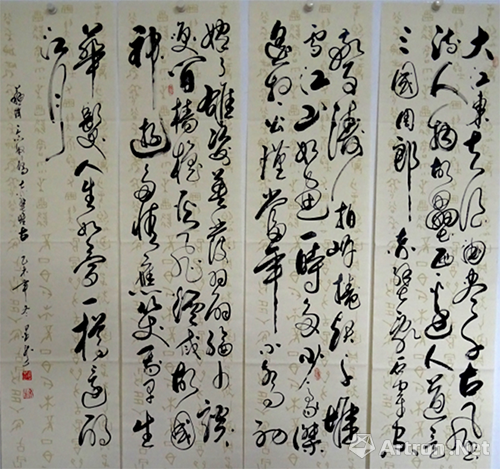 大江東去浪淘盡千古風
流人物故壘西邊人道是
三國周郎赤壁亂石穿空
驚濤拍岸捲起千堆
雪江山如畫一時多少豪傑
遥想公瑾當年小喬初
嫁了雄姿英發羽扇綸巾談
笑間檣櫓灰飛煙滅故國
神遊多情應笑我早生
華髮人生如夢一樽還酹
江月
赤壁懷古
Artron.Net